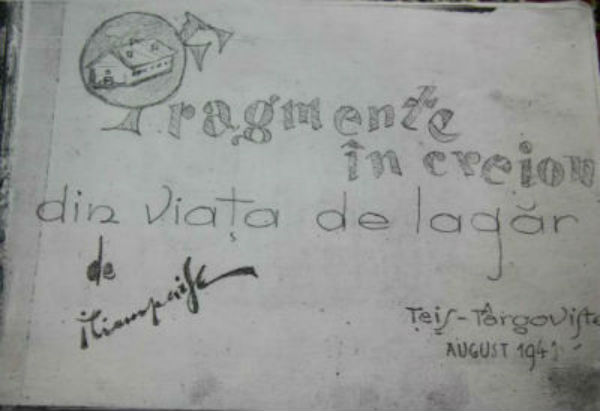 Fragmente
în creion
din viața de lagăr
de
Țeiș-Târgoviște
AUGUST 1941